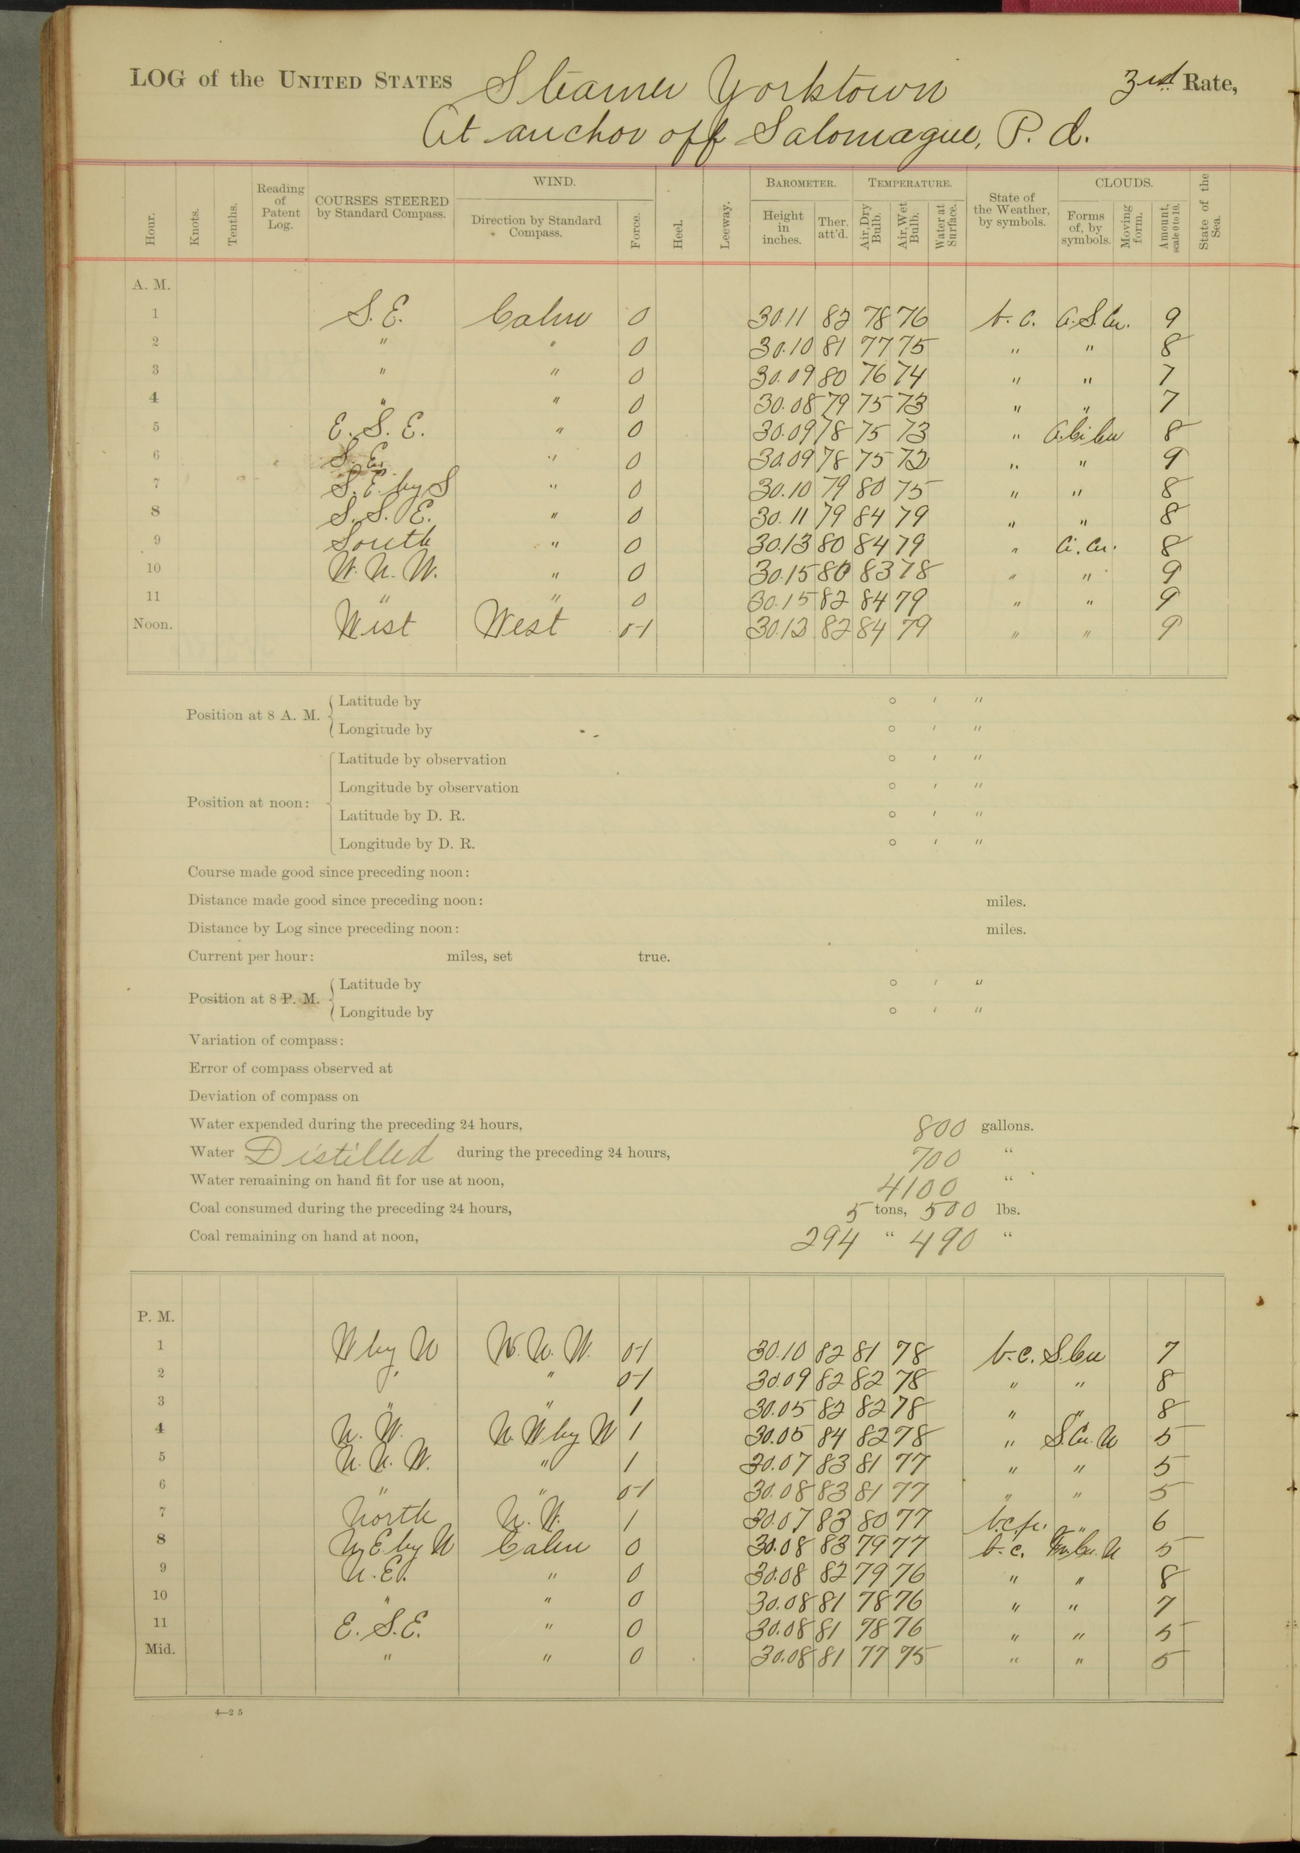 LOG of the UNITED STATES Steamer Yorktown 3rd Rate,
At anchor off Salomague, P. I.
Hour. Knots. Tenths. Reading of Patent Log. COURSES STEERED by Standard Compass. WIND. Direction by Standard Compass. Force. Heel. Leeway. BAROMETER. Height in inches. Ther. att'd. TEMPERATURE. Air, Dry Bulb. Air, Wet Bulb. Water at Surface. State of the Weather, by symbols. CLOUDS. Forms of, by symbols. Moving form. Amount, scale 0 to 10. State of the Sea.
A. M.
1 S. E. Calm 0 30.11 82 78 76 b. c. A. S. Cu. 9
2 " " 0 30.10 81 77 75 " " 8
3 " " 0 30.09 80 76 74 " " 7
4 " " 0 30.08 79 75 73 " " 7
5 E. S. E. " 0 30.09 78 75 73 " A. Ci Cu 8
6 S. E. " 0 30.09 78 75 72 " " 9
7 S. E. by S " 0 30.10 79 80 75 " " 8
8 S. S. E. " 0 30.11 79 84 79 " " 8
9 South " 0 30.13 80 84 79 " Ci. Cu. 8
10 W. N. W. " 0 30.15 80 83 78 " " 9
11 " " 0 30.15 82 84 79 " " 9
Noon. West West 0-1 30.12 82 84 79 " " 9
Position at 8 A. M. Latitude by ° ′ ″
Longitude by ° ′ ″
Position at noon: Latitude by observation ° ′ ″
Longitude by observation ° ′ ″
Latitude by D. R. ° ′ ″
Longitude by D. R. ° ′ ″
Course made good since preceding noon:
Distance made good since preceding noon: miles.
Distance by Log since preceding noon: miles.
Current per hour: miles, set true.
Position at 8 P. M. Latitude by ° ′ ″
Longitude by ° ′ ″
Variation of compass:
Error of compass observed at
Deviation of compass on
Water expended during the preceding 24 hours, 800 gallons.
Water Distilled during the preceding 24 hours, 700 "
Water remaining on hand fit for use at noon, 4100 "
Coal consumed during the preceding 24 hours, 5 tons, 500 lbs.
Coal remaining on hand at noon, 294 " 490 "
P. M.
1 W by N W. N. W. 0-1 30.10 82 81 78 b. c. S. Cu 7
2 " " 0-1 30.09 82 82 78 " " 8
3 " " 1 30.05 82 82 78 " " 8
4 N. W. N. W by W 1 30.05 84 82 78 " S. Cu. N 5
5 N. N. W. " 1 30.07 83 81 77 " " 5
6 " " 0-1 30.08 83 81 77 " " 5
7 North N. W. 1 30.07 83 80 77 " 6
8 N E by N Calm 0 30.08 83 79 77 b. c. Cu. N 5
9 N. E. " 0 30.08 82 79 76 " " 8
10 " " 0 30.08 81 78 76 " " 7
11 E. S. E. " 0 30.08 81 78 76 " " 5
Mid. " " 0 30.08 81 77 75 " " 5
4—25